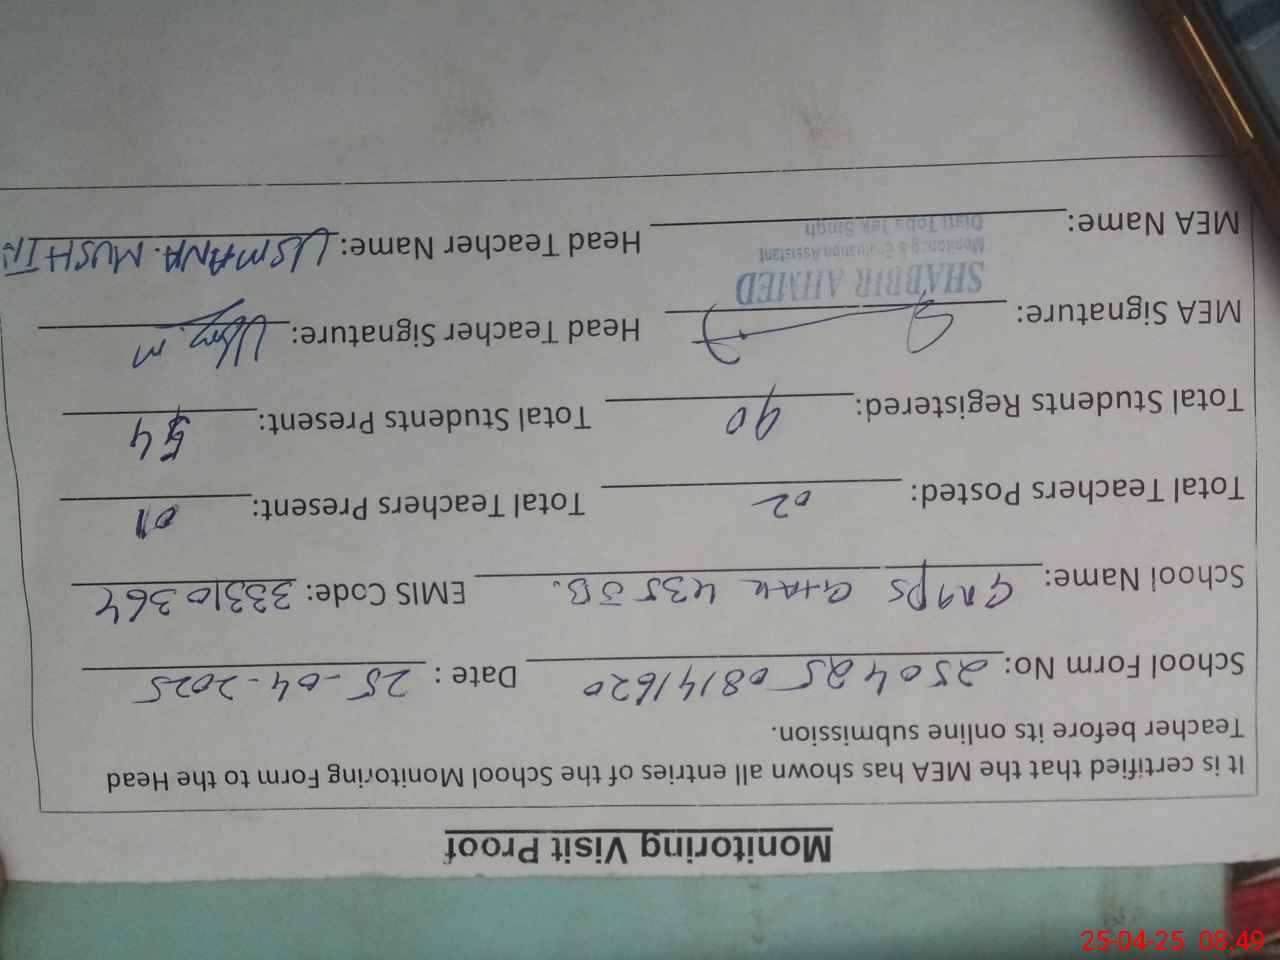 Monitoring Visit Proof
It is certified that the MEA has shown all entries of the School Monitoring Form to the Head
Teacher before its online submission.
School Form No: 250425 08141620 Date : 25-04-2025
School Name: GMPS CHAK 435 JB. EMIS Code: 33310364
Total Teachers Posted: 02 Total Teachers Present: 01
Total Students Registered: 90 Total Students Present: 54
MEA Signature: Head Teacher Signature:
SHABBIR AHMED
Monitoring & Evaluation Assistant
Distt Toba Tek Singh
MEA Name: Head Teacher Name: USMANA. MUSHTA
25-04-25 08:49